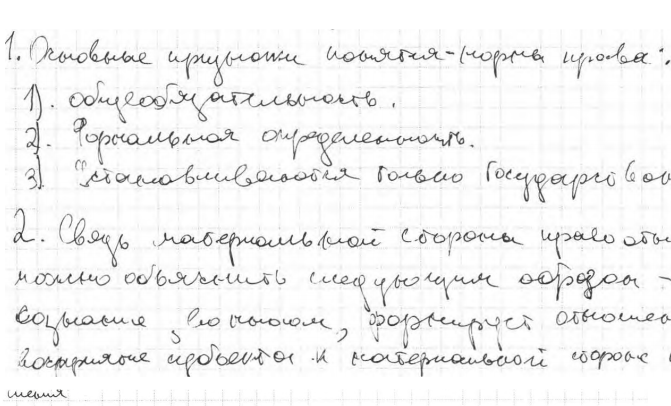 1. Основные признаки понятия-норма права:
1). общеобязательность.
2). Формальная определенность.
3) Устанавливаются только Государством
2. Связь материальной стороны право отн
можно объяснить следующим образом -
сознание, формирует отношен
восприятие субъектов к материальной стороне
шения